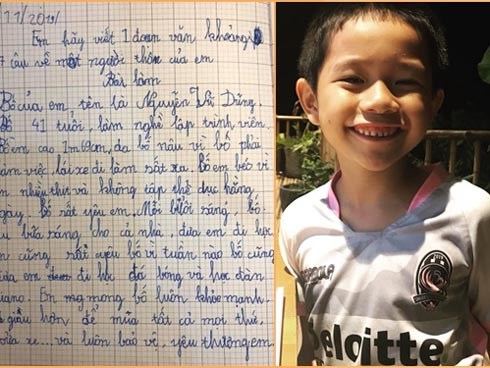 11/2019/
Em hãy viết 1 đoạn văn khoảng
7 câu về một người thân của em
Bài làm
Bố của em tên là Nguyễn Dũng.
Bố 41 tuổi, làm nghề lập trình viên.
Bố em cao 1m69cm, da bố nâu vì bố phải
làm việc, lái xe đi làm rất xa. Bố em béo vì
ăn nhiều thịt và không tập thể dục hằng
ngày. bố rất yêu em. Mỗi buổi sáng, bố
bữa sáng cho cả nhà, đưa em đi học
em cũng rất yêu bố vì tuần nào bố cũng
đưa em đi học đá bóng và học đàn
piano. Em mong bố luôn khỏe mạnh,
giầu hơn để mua tất cả mọi thứ,
xe... và luôn bảo vệ, yêu thương em.
Deloitte